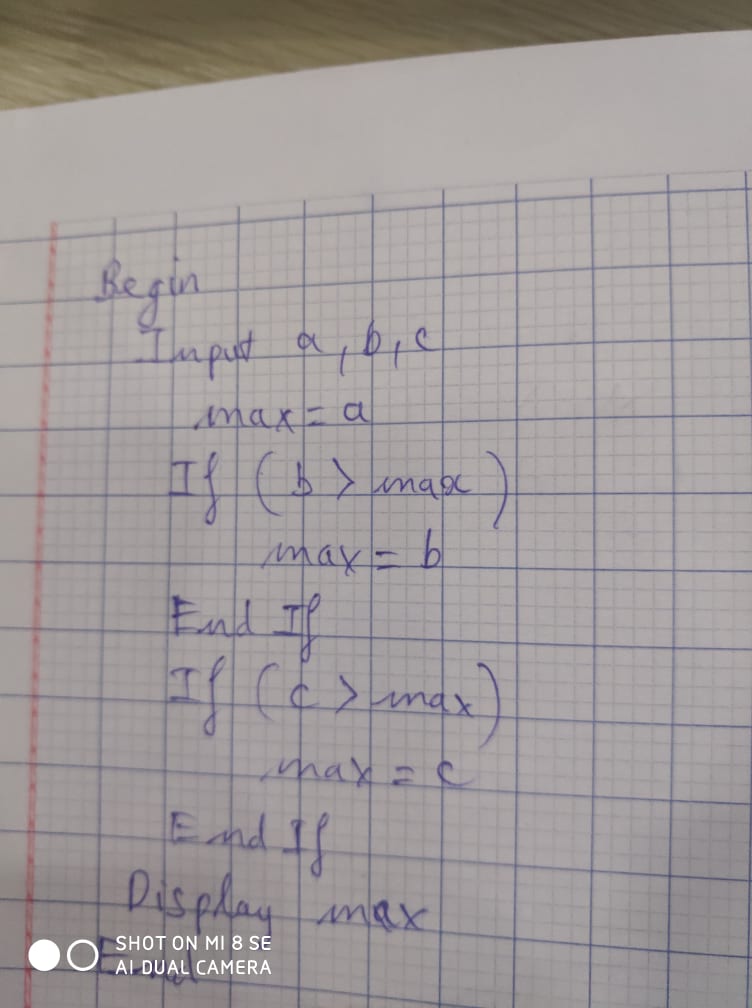 Begin
Input a, b, c
max = a
If (b > max)
max = b
End If
If (c > max)
max = c
End If
Display max
End
SHOT ON MI 8 SE
AI DUAL CAMERA